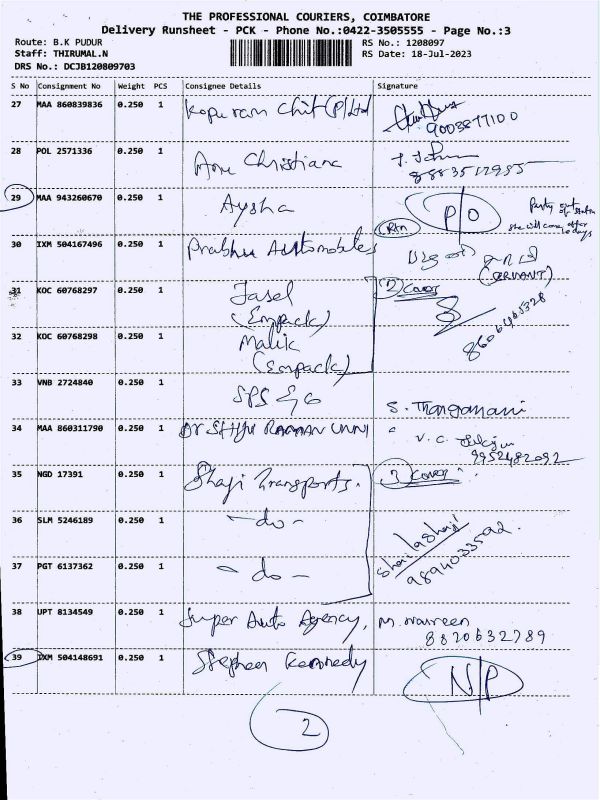 THE PROFESSIONAL COURIERS, COIMBATORE
Delivery Runsheet - PCK - Phone No.:0422-3505555 - Page No.:3
Route: B.K PUDUR RS No.: 1208097
Staff: THIRUMAL.N RS Date: 18-Jul-2023
DRS No.: DCJB120809703
S No Consignment No Weight PCS Consignee Details Signature
27 MAA 860839836 0.250 1 Kopuram Chit (P) Ltd
9003877100
28 POL 2571336 0.250 1 Christiana
29 MAA 943260670 0.250 1 Aysha P/O
Rtn
30 IXM 504167496 0.250 1 Prabhu Automobiles
31 KOC 60768297 0.250 1 Jasel 2 Cover
(Empack)
32 KOC 60768298 0.250 1 Malik
(Empack)
33 VNB 2724840 0.250 1 SPS & Co S. Thangamani
34 MAA 860311790 0.250 1 Dr SETHU RAMAN UNNI V.C.
9952482092
35 NGD 17391 0.250 1 Shaji Transports. 3 Cover
36 SLM 5246189 0.250 1 -do-
Shailashaji
9894033592.
37 PGT 6137362 0.250 1 -do-
38 UPT 8134549 0.250 1 Super Auto Agency, M. Navreen
8820632789
39 IXM 504148691 0.250 1 Stephen Kennedy N/P
2